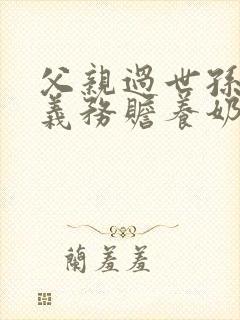 父親過世孫
義務贍養奶
蘭羞羞